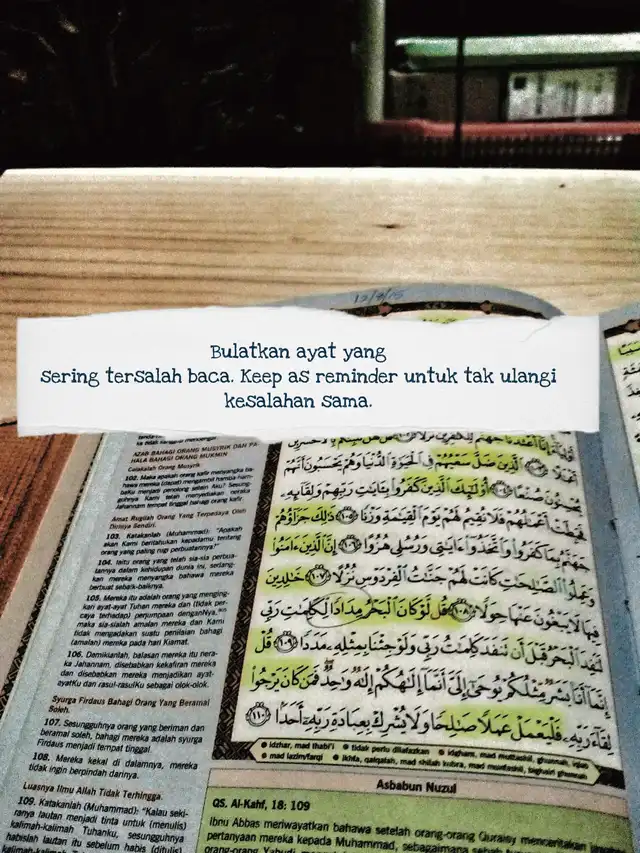 Bulatkan ayat yang
sering tersalah baca. Keep as reminder untuk tak ulangi
kesalahan sama.
AZAB BAHAGI ORANG MUSYRIK DAN PA
HALA BAHAGI ORANG MUKMIN
Celakalah Orang Musyrik
102. Maka apakah orang kafir menyangka ba-
hawa mereka (dapat) mengambil hamba-ham-
baKu menjadi penolong selain Aku? Sesung-
guhnya Kami telah menyediakan neraka
Jahannam tempat tinggal bagi orang kafir.
Amat Rugilah Orang Yang Terpesaya Oleh
Dirinya Sendiri.
103. Katakanlah (Muhammad): "Apakah
akan Kami beritahukan kepadamu tentang
orang yang paling rugi perbuatannya?"
104. Iaitu orang yang telah sia-sia perbua-
tannya dalam kehidupan dunia ini, sedang-
kan mereka menyangka bahawa mereka
berbuat sebaik-baiknya.
105. Mereka itu adalah orang yang menging-
kari ayat-ayat Tuhan mereka dan (tidak per-
caya terhadap) perjumpaan denganNya,
maka sia-sialah amalan mereka dan Kami
tidak mengadakan suatu penilaian bahagi
(amalan) mereka pada hari Kiamat.
106. Demikianlah, balasan mereka itu nera-
ka Jahannam, disebabkan kekafiran mereka
dan disebabkan mereka menjadikan ayat-
ayatKu dan rasul-rasulKu sebagai olok-olok.
Syurga Firdaus Bahagi Orang Yang Beramal
Soleh.
107. Sesungguhnya orang yang beriman dan
beramal soleh, bahagi mereka adalah syurga
Firdaus menjadi tempat tinggal.
108. Mereka kekal di dalamnya, mereka
tidak ingin berpindah darinya.
Luasnya Ilmu Allah Tidak Terhingga.
109. Katakanlah (Muhammad): "Kalau seki-
ranya lautan menjadi tinta untuk (menulis)
kalimah-kalimah Tuhanku, sesungguhnya
habislah lautan itu sebelum habis (ditulis)
إِنَّا أَعْتَدْنَا جَهَنَّمَ لِلْكَافِرِينَ نُزُلًا ١٠٢ قُلْ هَلْ نُنَبِّئُكُم بِالْأَخْسَرِينَ
أَعْمَالًا ١٠٣ الَّذِينَ ضَلَّ سَعْيُهُمْ فِي الْحَيَاةِ الدُّنْيَا وَهُمْ يَحْسَبُونَ أَنَّهُمْ
يُحْسِنُونَ صُنْعًا ١٠٤ أُولَٰئِكَ الَّذِينَ كَفَرُوا بِآيَاتِ رَبِّهِمْ وَلِقَائِهِ
فَحَبِطَتْ أَعْمَالُهُمْ فَلَا نُقِيمُ لَهُمْ يَوْمَ الْقِيَامَةِ وَزْنًا ١٠٥ ذَٰلِكَ جَزَاؤُهُمْ
جَهَنَّمُ بِمَا كَفَرُوا وَاتَّخَذُوا آيَاتِي وَرُسُلِي هُزُوًا ١٠٦ إِنَّ الَّذِينَ آمَنُوا
وَعَمِلُوا الصَّالِحَاتِ كَانَتْ لَهُمْ جَنَّاتُ الْفِرْدَوْسِ نُزُلًا ١٠٧ خَالِدِينَ
فِيهَا لَا يَبْغُونَ عَنْهَا حِوَلًا ١٠٨ قُل لَّوْ كَانَ الْبَحْرُ مِدَادًا لِّكَلِمَاتِ رَبِّي
لَنَفِدَ الْبَحْرُ قَبْلَ أَن تَنفَدَ كَلِمَاتُ رَبِّي وَلَوْ جِئْنَا بِمِثْلِهِ مَدَدًا ١٠٩ قُلْ
إِنَّمَا أَنَا بَشَرٌ مِّثْلُكُمْ يُوحَىٰ إِلَيَّ أَنَّمَا إِلَٰهُكُمْ إِلَٰهٌ وَاحِدٌ فَمَن كَانَ يَرْجُوا
لِقَاءَ رَبِّهِ فَلْيَعْمَلْ عَمَلًا صَالِحًا وَلَا يُشْرِكْ بِعِبَادَةِ رَبِّهِ أَحَدًا ١١٠
● idzhar, mad thabi'i ● tidak perlu dilafazkan ● idgham, mad muttashil, ghunnah, iqlab
● mad lazim/farqi ● ikhfa, qalqalah, mad shilah kubra, mad munfashil, tasghair ghunnah
Asbabun Nuzul
QS. Al-Kahf, 18: 109
Ibnu Abbas meriwayatkan bahawa setelah orang-orang Quraisy menceritakan
pertanyaan mereka kepada Muhammad, sebagaimana sebab
orang-orang Yahudi